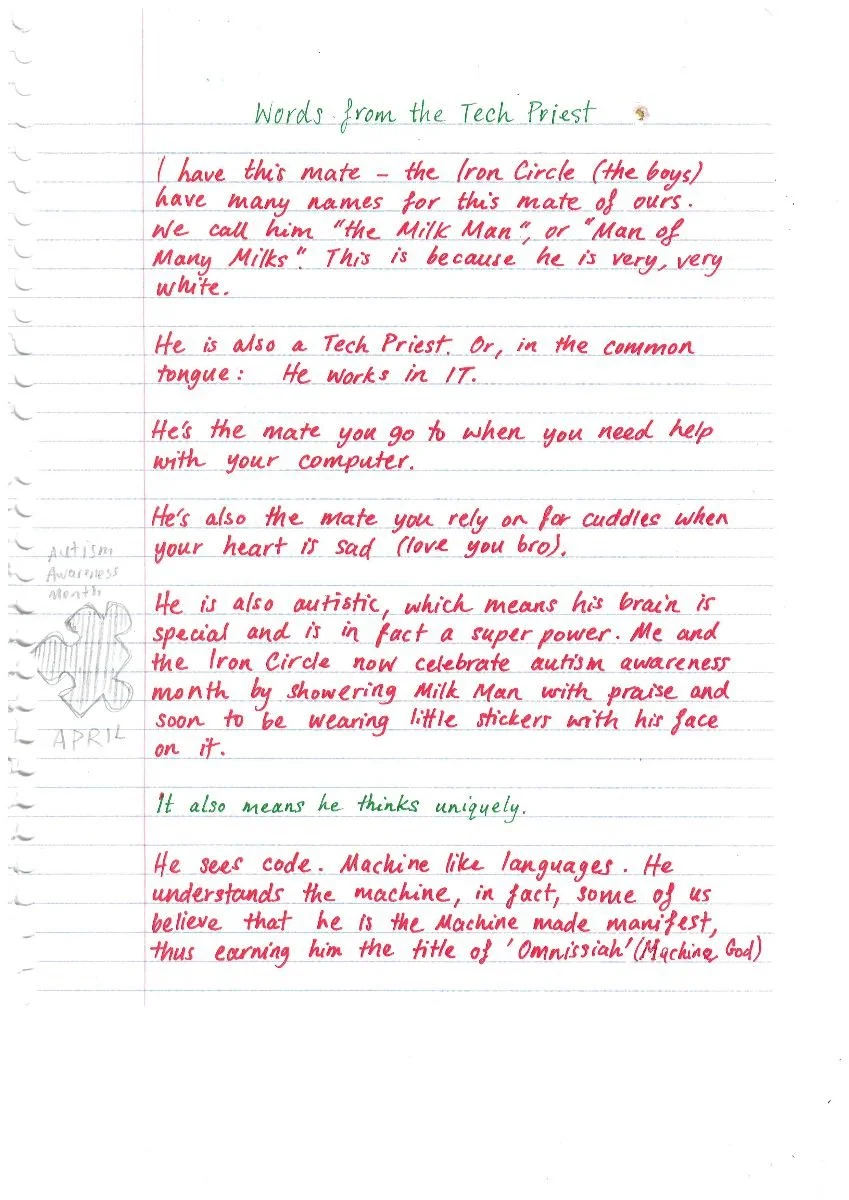 Words from the Tech Priest
I have this mate - the Iron Circle (the boys)
have many names for this mate of ours.
We call him "the Milk Man", or "Man of
Many Milks". This is because he is very, very
white.
He is also a Tech Priest. Or, in the common
tongue: He works in IT.
He's the mate you go to when you need help
with your computer.
He's also the mate you rely on for cuddles when
your heart is sad (love you bro).
Autism
Awareness
Month
APRIL
He is also autistic, which means his brain is
special and is in fact a super power. Me and
the Iron Circle now celebrate autism awareness
month by showering Milk Man with praise and
soon to be wearing little stickers with his face
on it.
It also means he thinks uniquely.
He sees code. Machine like languages. He
understands the machine, in fact, some of us
believe that he is the Machine made manifest,
thus earning him the title of 'Omnissiah' (Machine God)